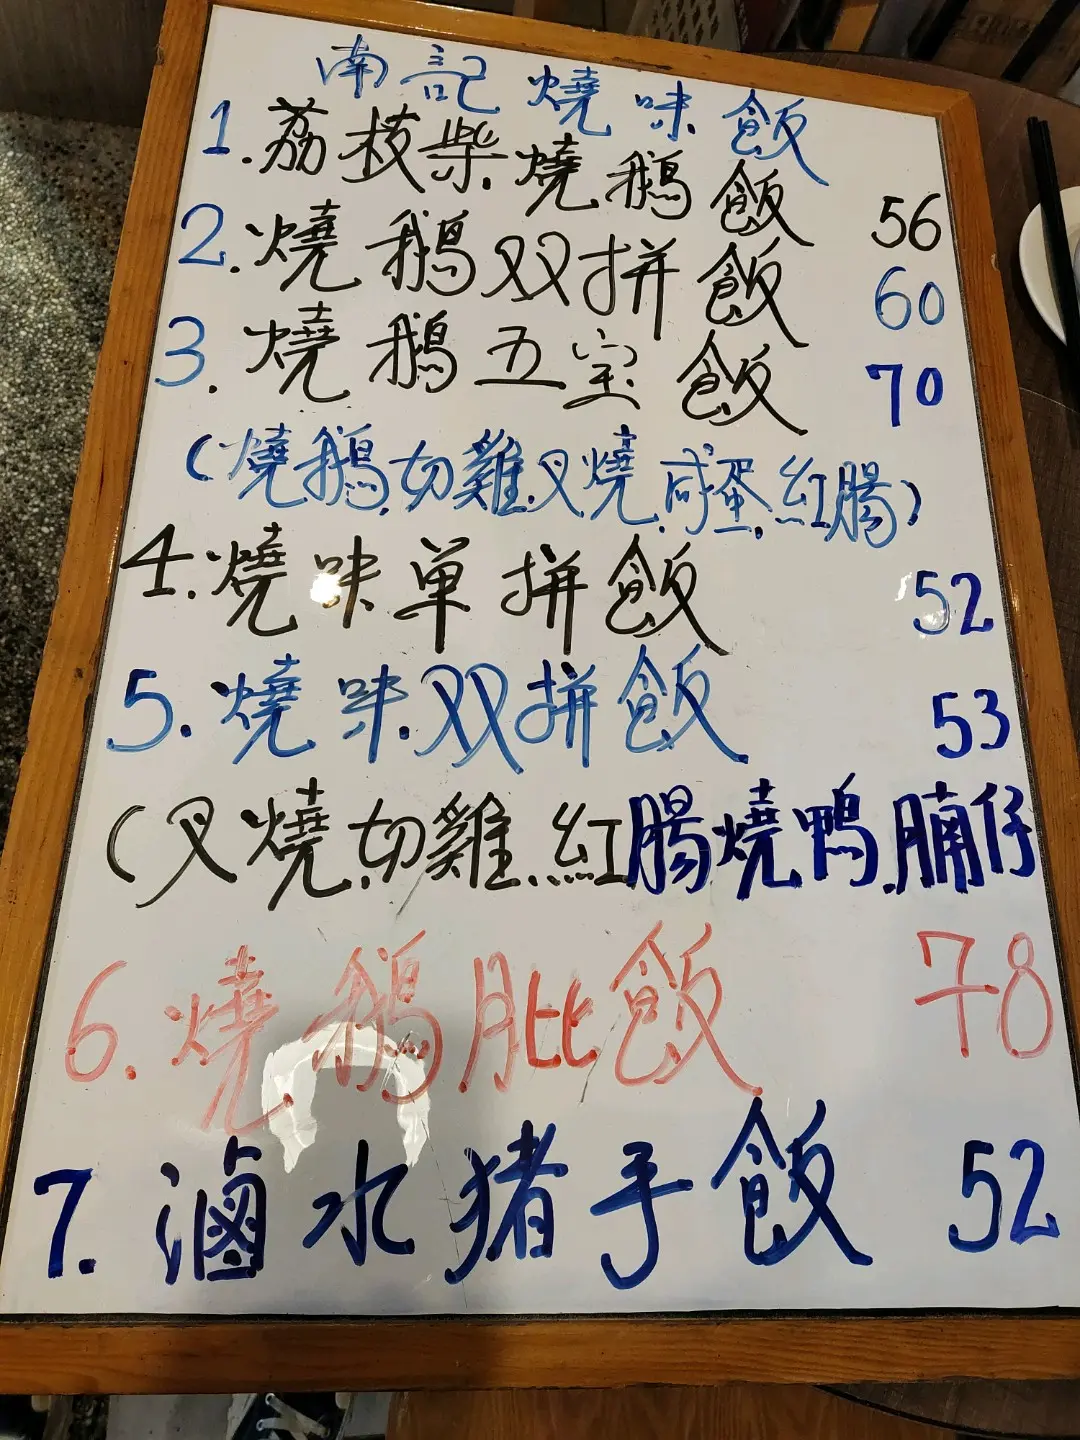 南記燒味飯
1.荔枝柴燒鵝飯 56
2.燒鵝双拼飯 60
3.燒鵝五宝飯 70
(燒鵝.切雞.叉燒.咸蛋.紅腸)
4.燒味单拼飯 52
5.燒味双拼飯 53
(叉燒.切雞.紅腸燒鴨.腩仔
6.燒鵝肶飯 78
7.滷水猪手飯 52